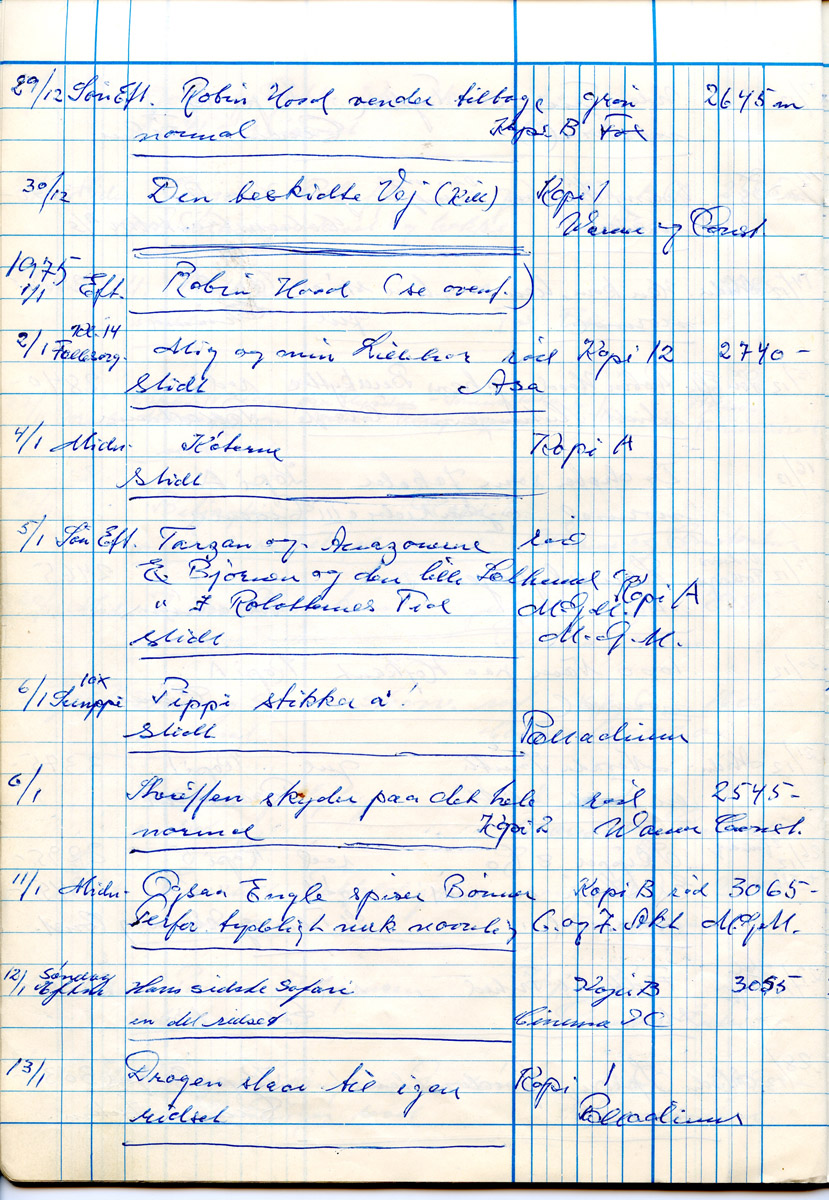 29/12 Søn Eft. Robin Hood vender tilbage grøn 2645 m
normal Kopi B Fox
30/12 Den beskidte Vej (Kill) Kopi 1
Warner og Const
1975
1/1 Eft. Robin Hood (se ovenf.)
Kl. 14
2/1 Mig og min Lillebror rød Kopi 12 2740 -
Slidt Asa
4/1 Midn. Kopi A
Slidt
5/1 Søn Eft. Tarzan og Amazonerne rød
E. Bjørnen og den lille Kopi A
" 7 Tid M.G.M.
Slidt M.G.M.
10x
6/1 Pippi stikker a'!
Slidt Palladium
6/1 Sheriffen skyder paa det hele rød 2545 -
normal Kopi 2 Warner Const.
11/1 Midn. Ogsaa Engle spiser Bønner Kopi B rød 3065 -
Perfor. tydeligt navnlig 6. og 7. Akt M.G.M.
12/1 Søndag Hans sidste Safari Kopi B 3055
en del ridset Cinema I C
13/1 Dragen slaar til igen Kopi 1
ridset Palladium